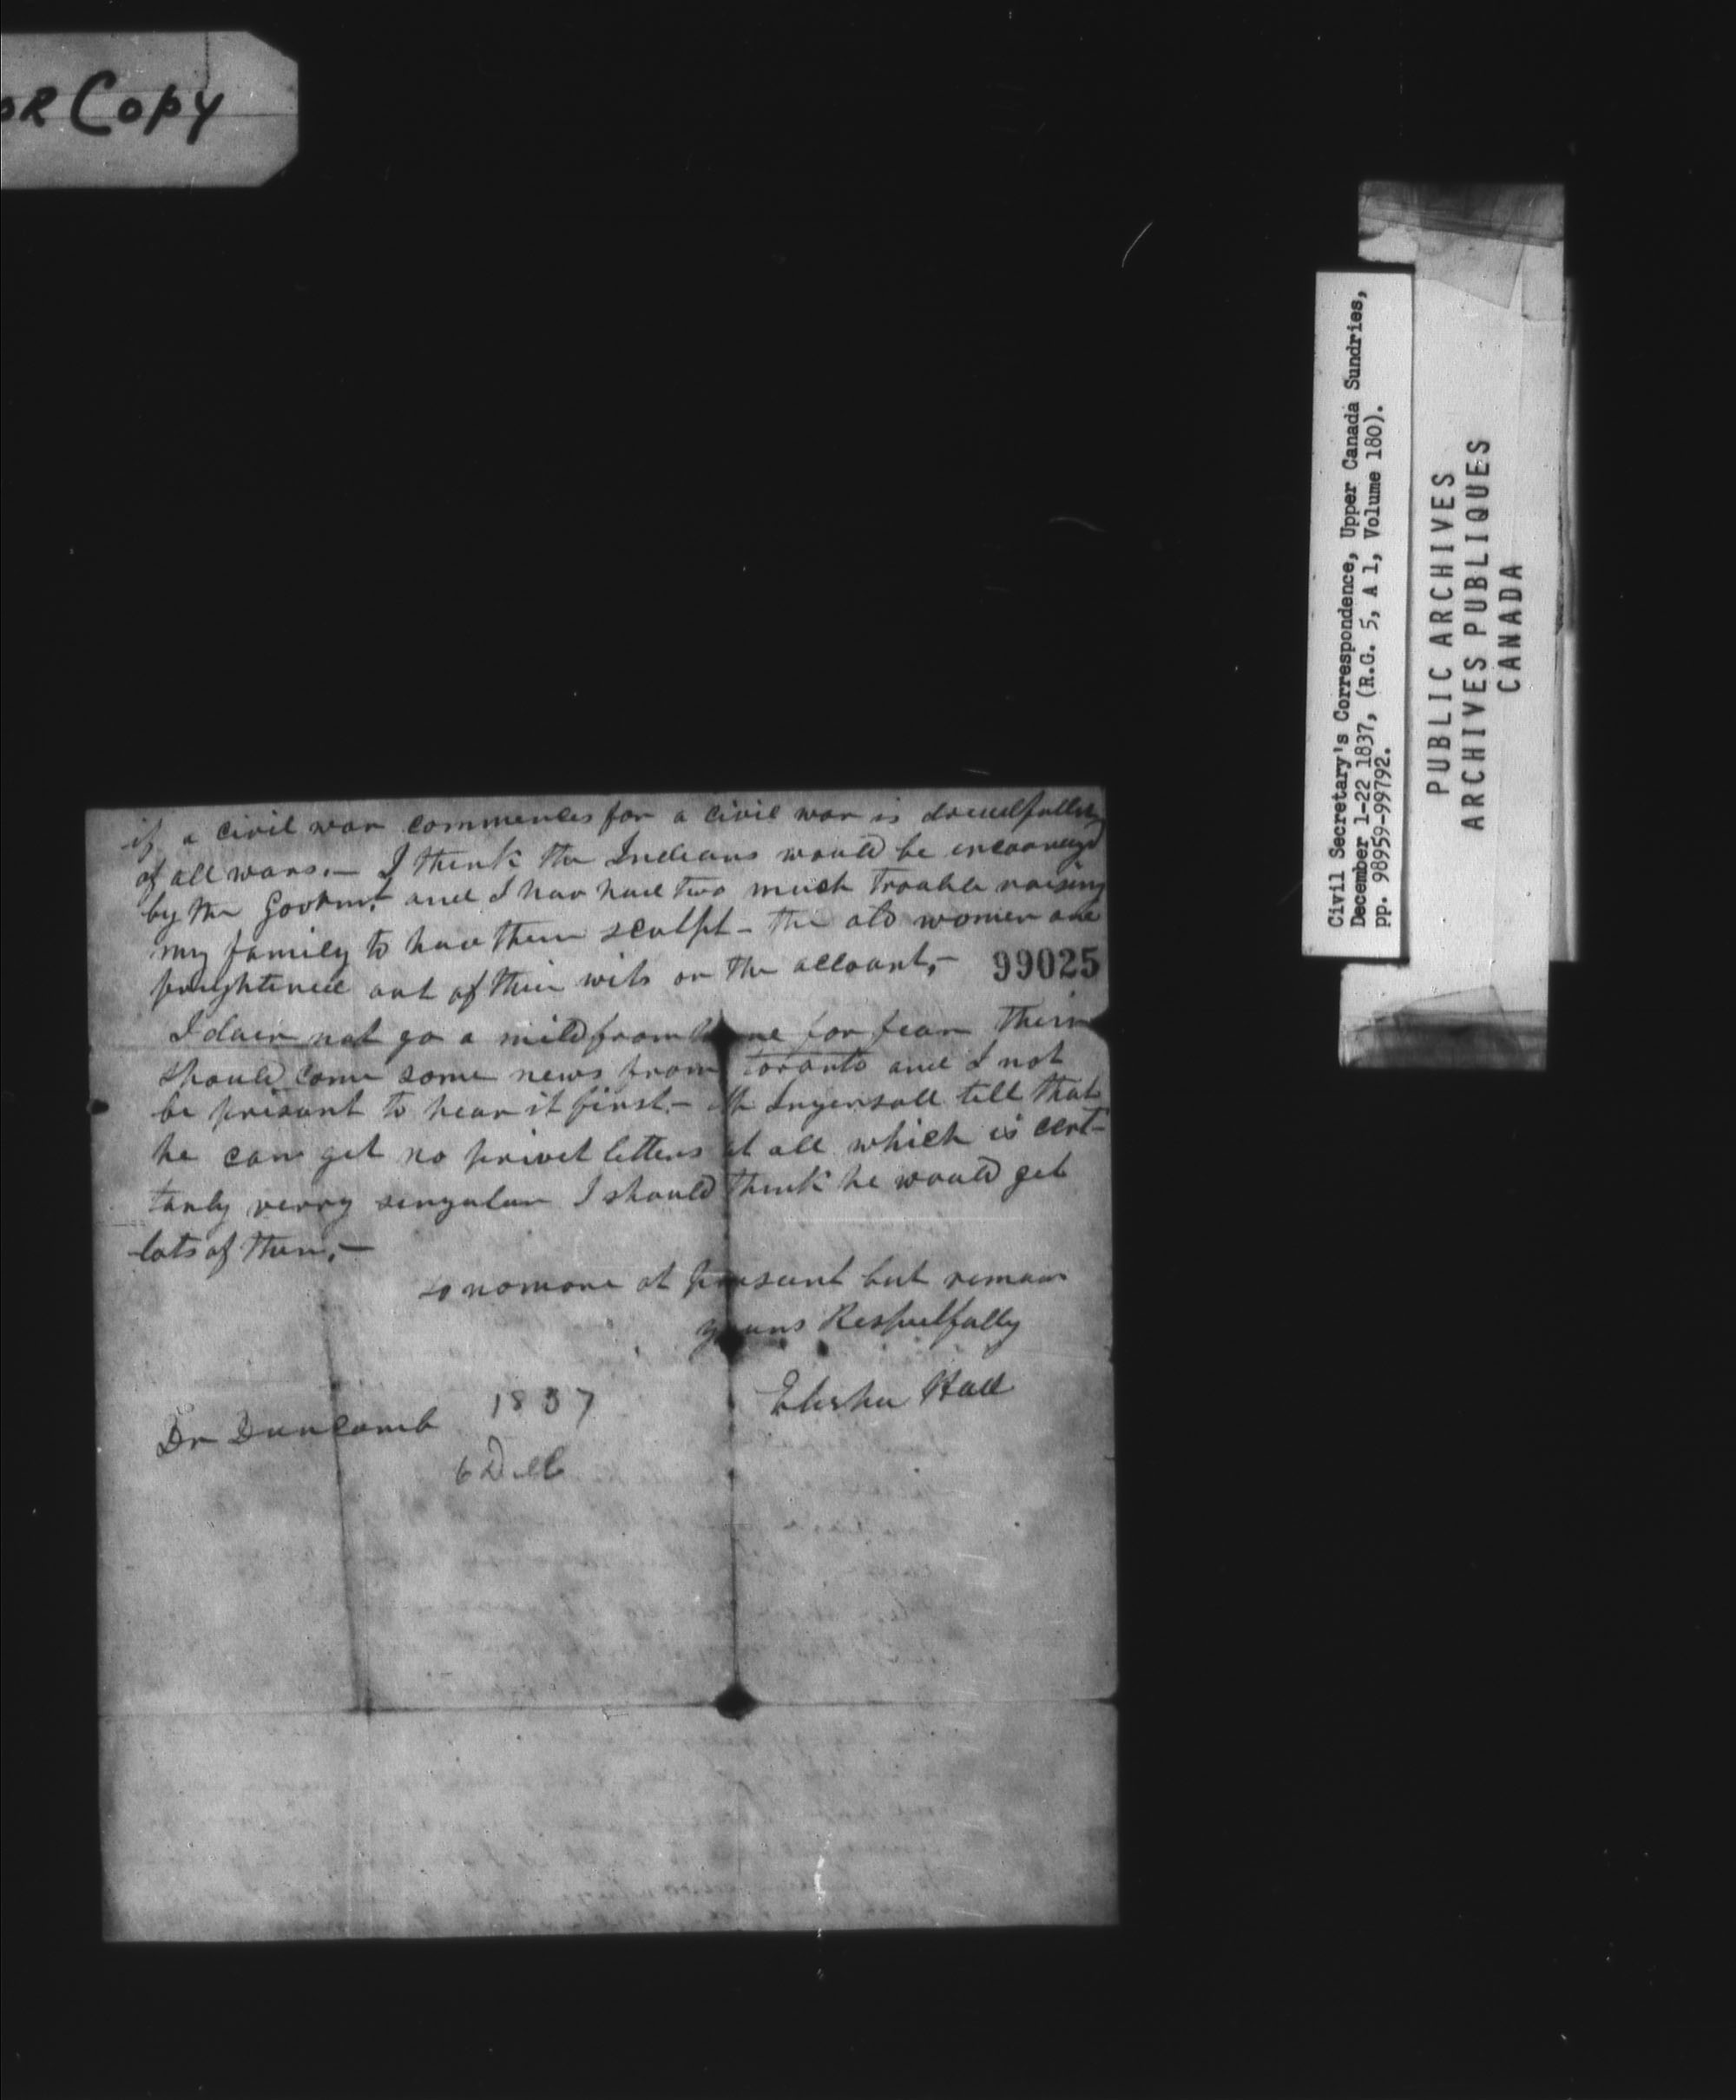 OR Copy
if a civil war commences for a civil war is
of all wars. — I think the Indians would be incouraged
by the Govornt and I hav had two much trouble raising
my family to have them sculpt — the old women are
frightened out of their wits on the account, —
99025
I dair not go a mild from home for fear their
should come some news from toronto and I not
be prisant to hear it first. — Mr Ingersall tell that
he can get no privet letters at all which is cert-
tanly verry singular I should think he would get
lots of them, —
so nomore at prasent but remain
yours Respectfully
Elisha Hall
Dr Duncomb
1837
6 Dec
Civil Secretary's Correspondence, Upper Canada Sundries,
December 1-22 1837, (R.G. 5, A 1, Volume 180).
pp. 98959-99792.
PUBLIC ARCHIVES
ARCHIVES PUBLIQUES
CANADA